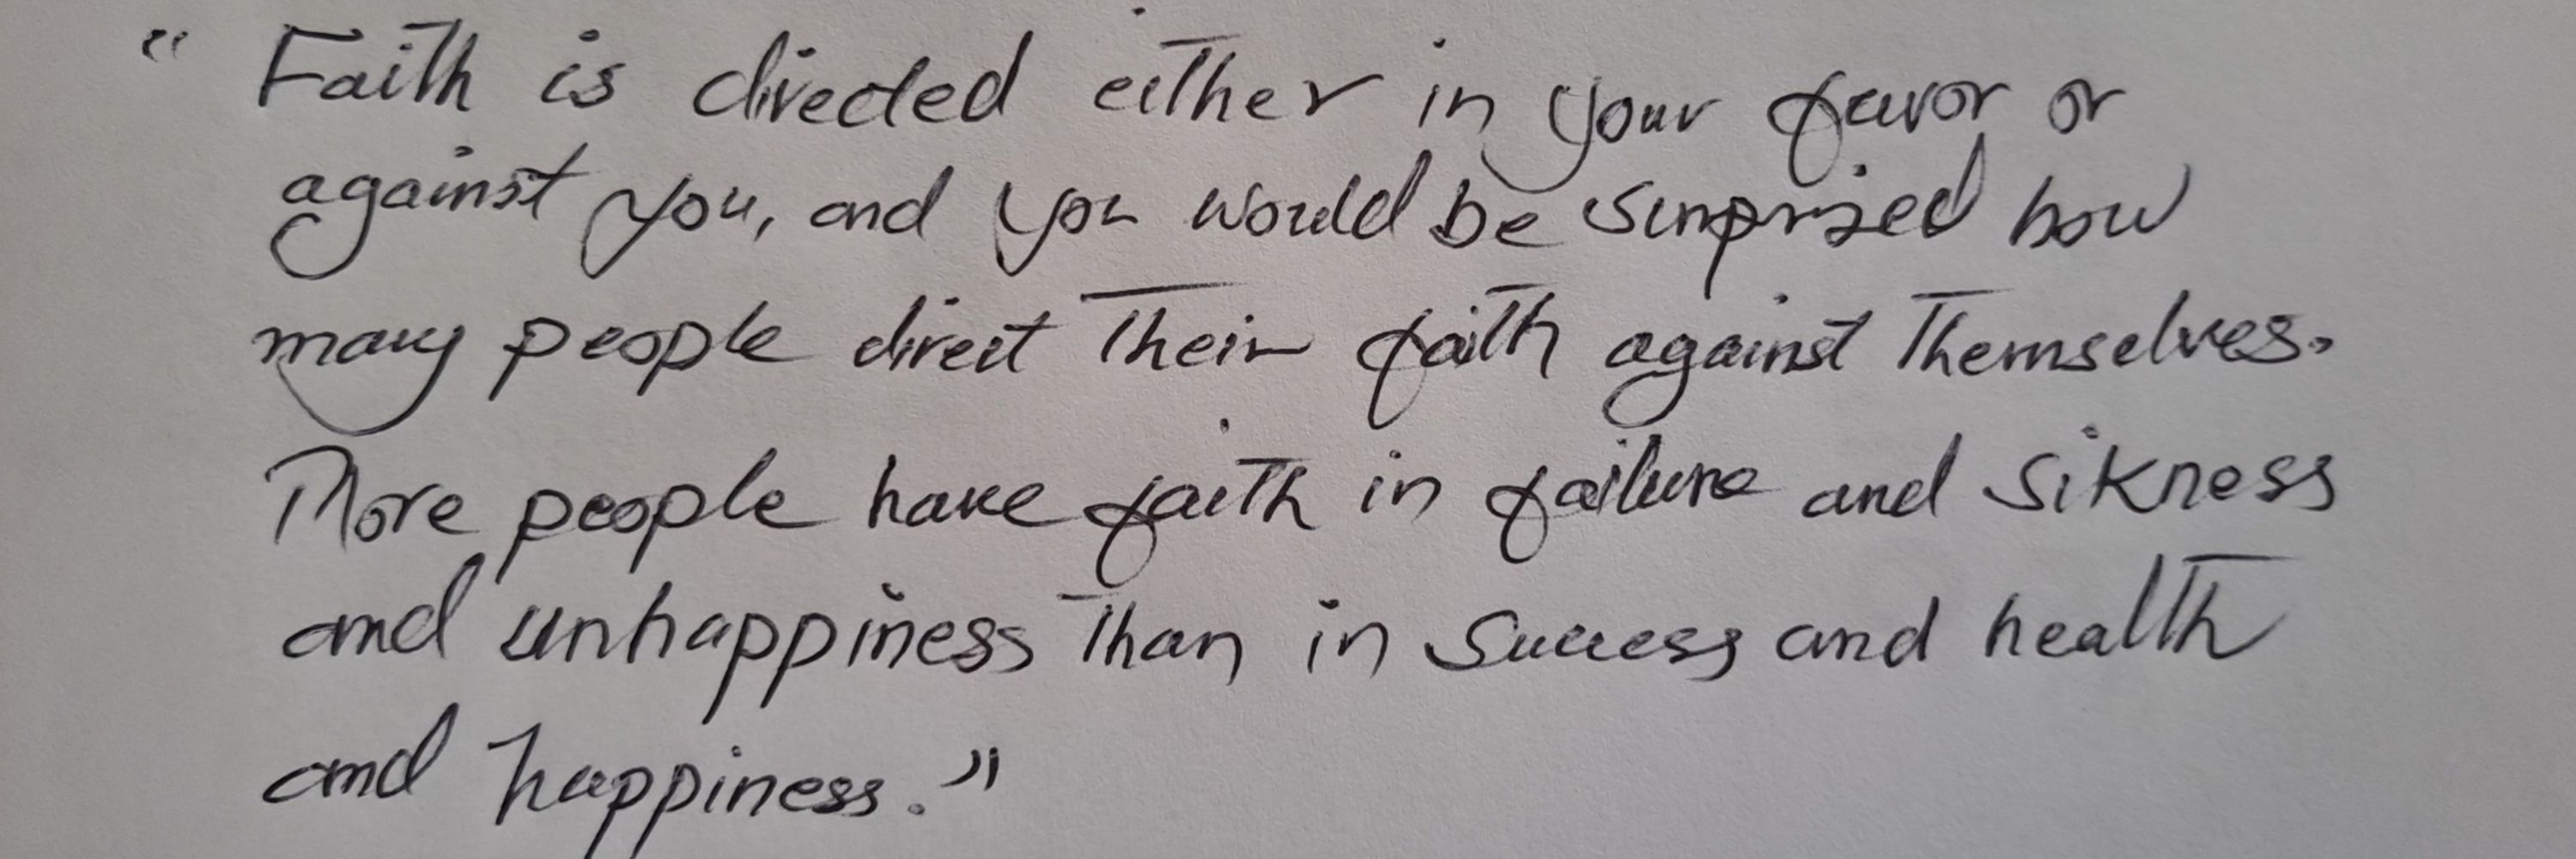 “Faith is directed either in your favor or
against you, and you would be surprized how
many people direct their faith against themselves.
More people have faith in failure and sikness
and unhappiness than in success and health
and happiness.”